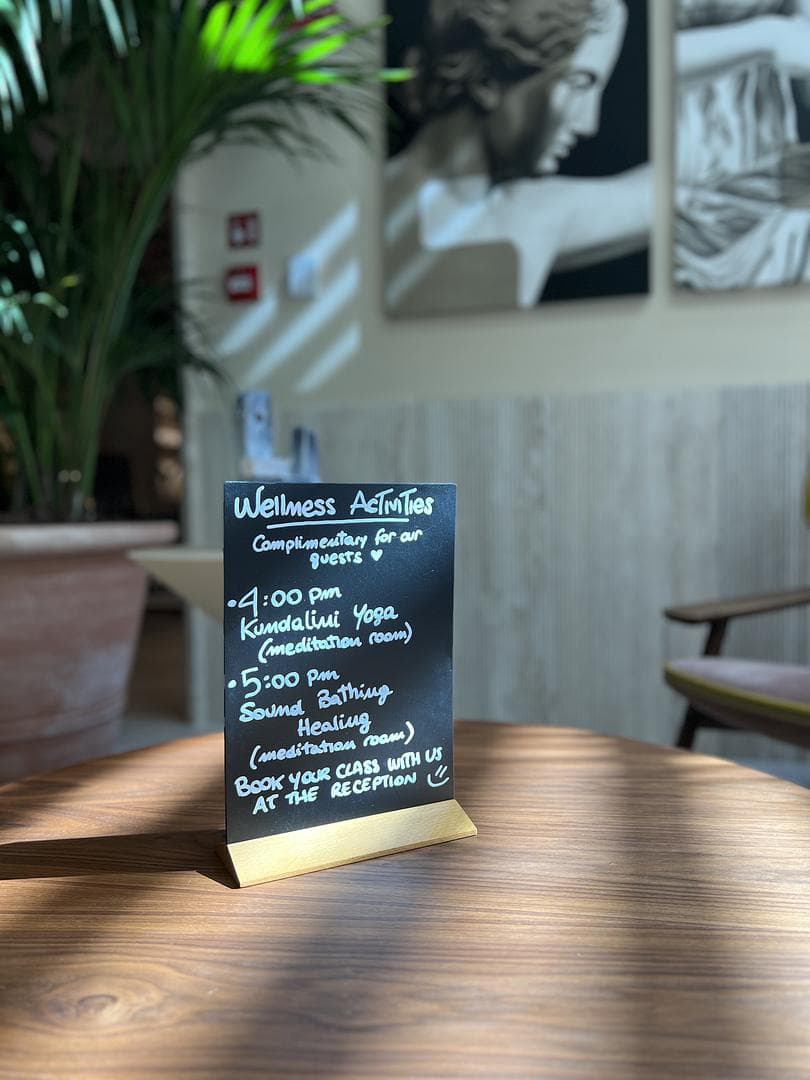 Wellness Activities
Complimentary for our
guests ♥
• 4:00 pm
Kundalini Yoga
(meditation room)
• 5:00 pm
Sound Bathing
Healing
(meditation room)
BOOK YOUR CLASS WITH US
AT THE RECEPTION